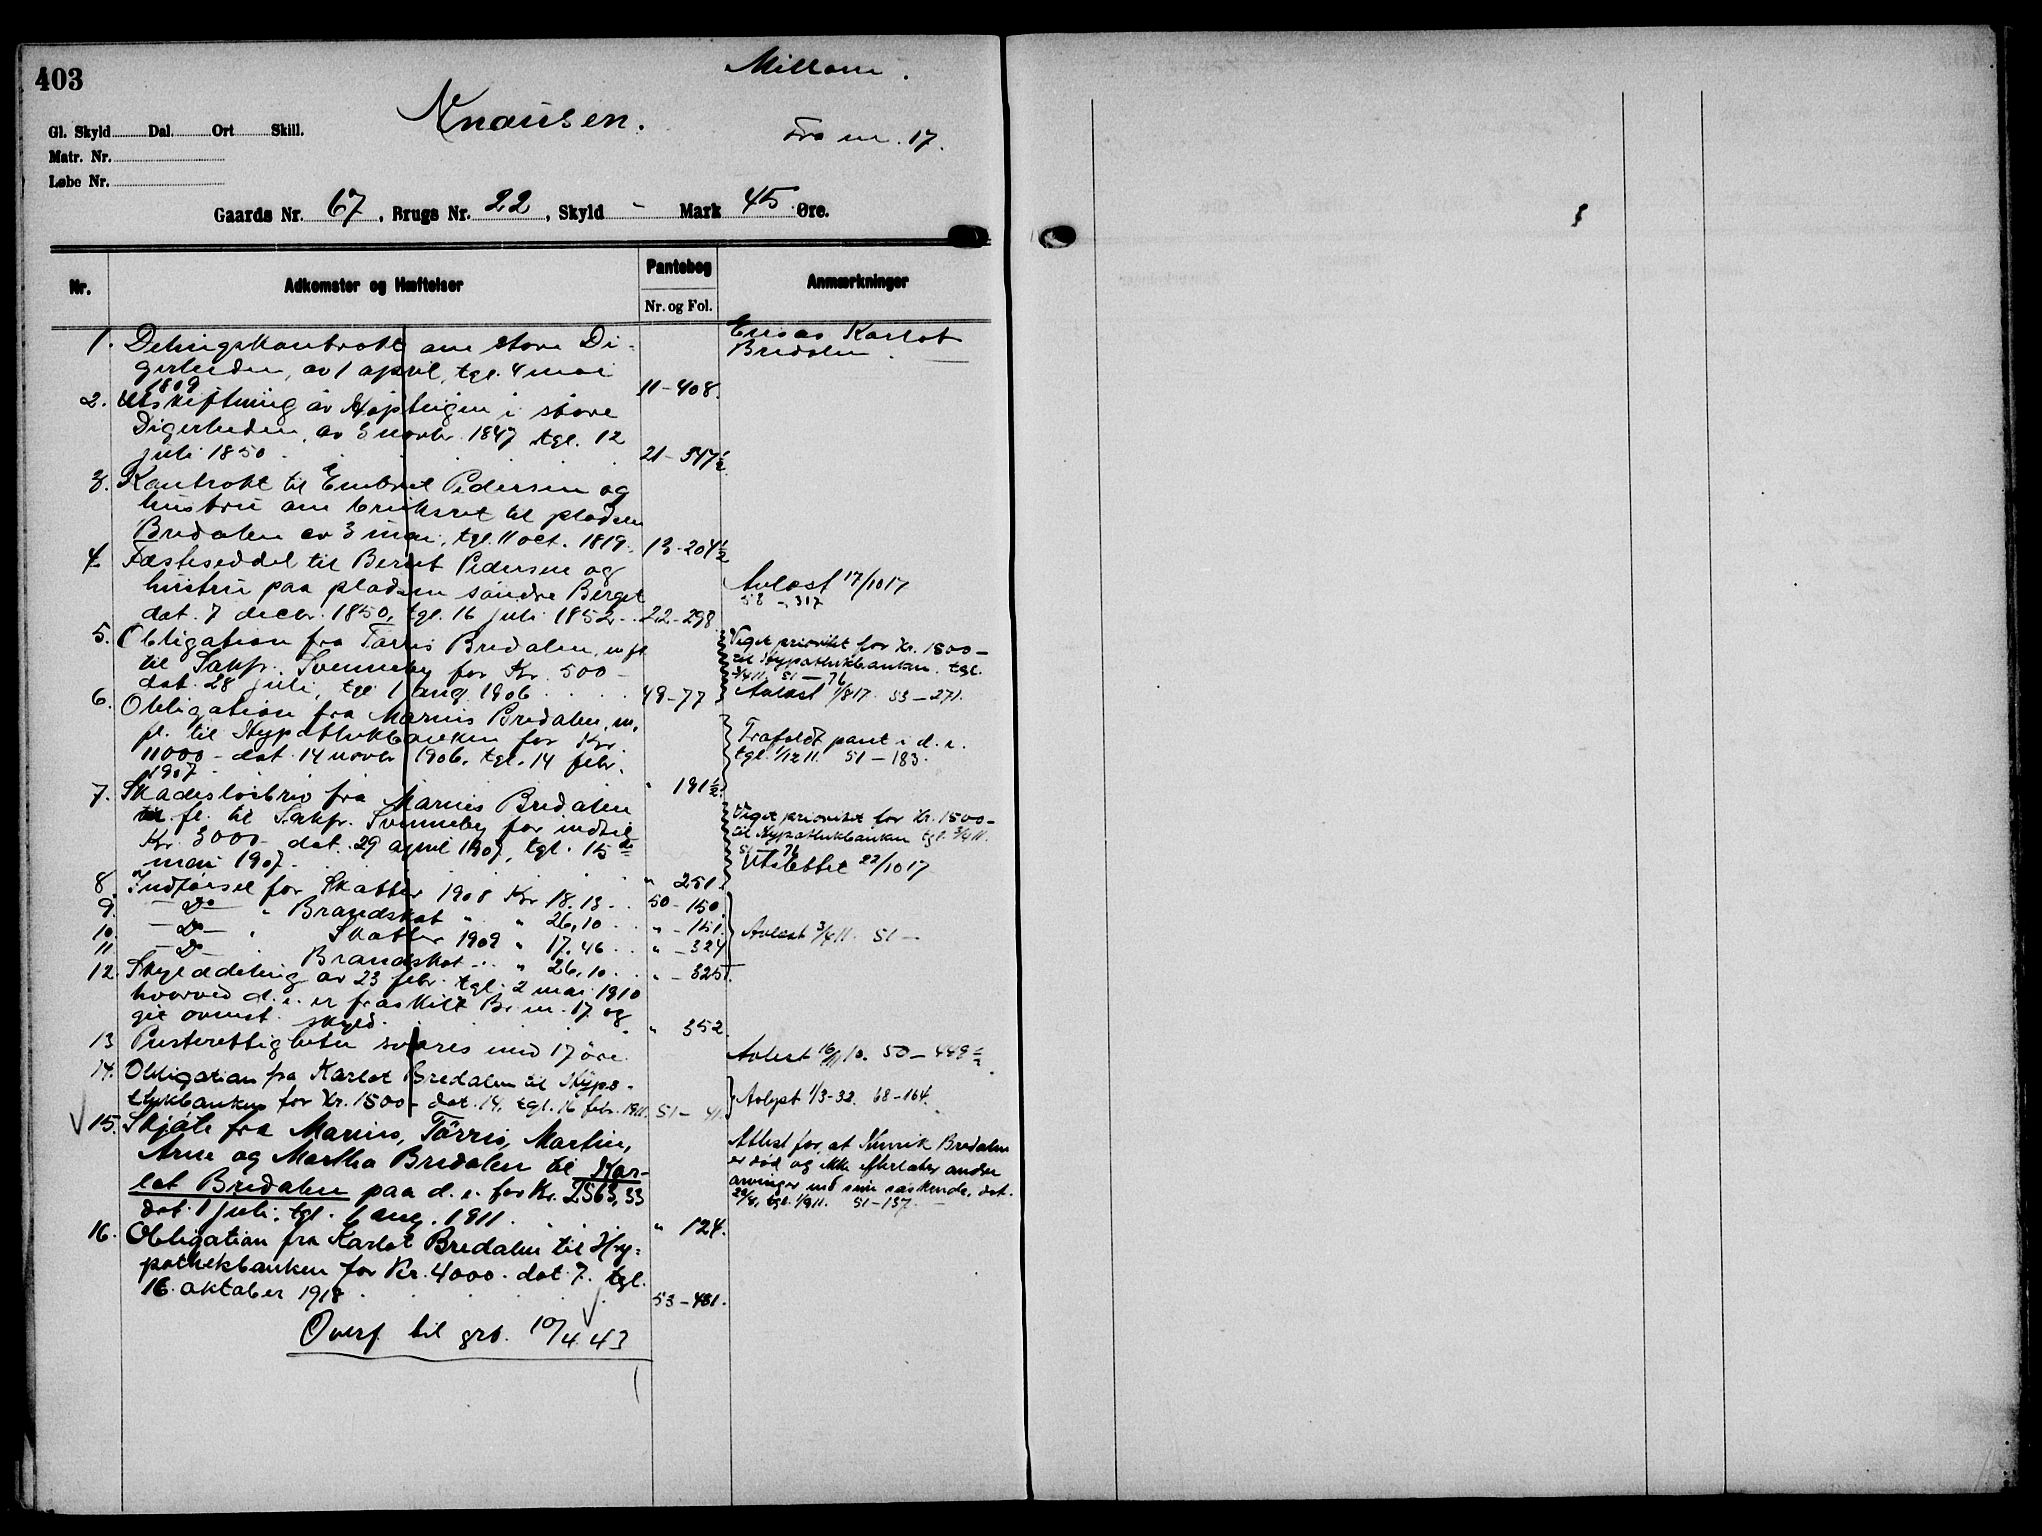 403
Millom.
Knausen.
Fra nr. 17.
Gl. Skyld Dal. Ort Skill.
Matr. Nr.
Løbe Nr.
Gaards Nr. 67, Brugs Nr. 22, Skyld - Mark 45 Øre.
Nr. Adkomster og Hæftelser Pantebog Anmærkninger
Nr. og Fol.
1. Delingskontrakt om store Di-
gerheden, av 1 april, tgl. 4 mai
1809 11-408.
Karlot
Bredalen.
2. Utskiftning av Hopteigen i store
Digerheden, av 3 novbr. 1847 tgl. 12
juli 1850. 21-547½
3. Kontrakt til Embret Pedersen og
hustru om bruksret til pladsen
Bredalen av 3 mai, tgl. 11 oct. 1819. 13-204½
4. Fæsteseddel til Bernt Pedersen og
hustru paa pladsen søndre Berget
dat. 7 decbr. 1850, tgl. 16 juli 1852. 22-298
Avlæst 17/10 17
53 - 317
5. Obligation fra Tørris Bredalen m.fl.
til Sakfr. Svenneby for Kr. 500 -
dat. 28 juli, tgl. 1 aug. 1906 49-77
Veget prioritet for Kr. 1500 -
til Hypothekbanken tgl.
3/4 11. 51 - 76
Avlæst 1/8 17. 53 - 271.
6. Obligation fra Marius Bredalen m.
fl. til Hypothekbanken for Kr.
11000 - dat. 14 novbr. 1906, tgl. 14 febr.
1907. " 191½
Frafaldt pant i d. e.
tgl. 1/12 11. 51 - 183.
7. Skadesløsbrev fra Marius Bredalen
m. fl. til Sakfr. Svenneby for indtil
Kr. 3000 - dat. 29 april 1907, tgl. 15de
mai 1907. " 251
Veget prioritet for Kr. 1500 -
til Hypothekbanken tgl. 3/4 11.
51 - 76
Utslettet 22/10 17
8. Indførsel for Skatter 1908 Kr. 18.13 50-150
9. - Do - " Brandskat " " 26,10 " - 151
10. - Do - " Skatter 1909 " 17.46 " - 324
11 - Do - Brandskat " 26,10 " - 325
Avlæst 3/4 11. 51 -
12. Skylddeling av 23 febr. tgl. 2 mai 1910
hvorved d. e. er fraskilt Br. nr. 17 og
git ovenst. skyld. " 352
13 Presterettigheten svares med 17 øre.
Avlest 16/11 10. 50 - 449½
14. Obligation fra Karlot Bredalen til Hypo-
thekbanken for Kr. 1500 - dat. 14, tgl. 16 febr. 1911. 51 - 41.
Avlyst 1/3-32. 68-164.
15. Skjøte fra Marius, Tørris, Martin,
Arne og Martha Bredalen til Kar-
lot Bredalen paa d. e. for Kr. 2563,33
dat. 1 juli, tgl. 1 aug. 1911. " 124.
Attest for, at Henrik Bredalen
er død og ikke efterlater andre
arvinger end sine søskende, dat.
22/8, tgl. 1/9 11. 51-137.
16. Obligation fra Karlot Bredalen til Hy-
pothekbanken for Kr. 4000. dat. 7. tgl.
16. oktober 1918 53-481.
Overf. til grb. 10/4. 43